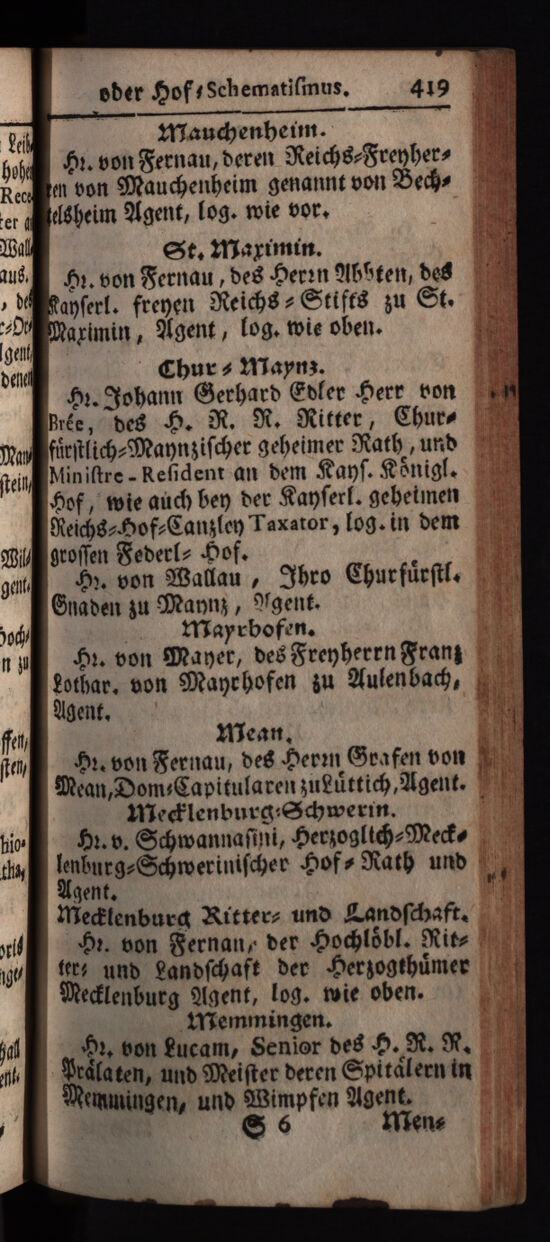 oder Hof-Schematismus. 419
Mauchenheim.
Hr. von Fernau, deren Reichs-Freyher-
ren von Mauchenheim genannt von Bech-
telsheim Agent, log. wie vor.
St. Maximin.
Hr. von Fernau, des Herrn Abbten, des
Kayserl. freyen Reichs-Stifts zu St.
Maximin, Agent, log. wie oben.
Chur-Maynz.
Hr. Johann Gerhard Edler Herr von
Brée, des H. R. R. Ritter, Chur-
fürstlich-Maynzischer geheimer Rath, und
Ministre-Resident an dem Kays. Königl.
Hof, wie auch bey der Kayserl. geheimen
Reichs-Hof-Canzley Taxator, log. in dem
grossen Federl-Hof.
Hr. von Wallau, Ihro Churfürstl.
Gnaden zu Maynz, Agent.
Mayrhofen.
Hr. von Mayer, des Freyherrn Franz
Lothar. von Mayrhofen zu Aulenbach,
Agent.
Mean.
Hr. von Fernau, des Herrn Grafen von
Mean, Dom-Capitularen zu Lüttich, Agent.
Mecklenburg-Schwerin.
Hr. v. Schwannasini, Herzoglich-Meck-
lenburg-Schwerinischer Hof-Rath und
Agent.
Mecklenburg Ritter- und Landschaft.
Hr. von Fernau, der Hochlöbl. Rit-
ter- und Landschaft der Herzogthümer
Mecklenburg Agent, log. wie oben.
Memmingen.
Hr. von Lucam, Senior des H. R. R.
Prälaten, und Meister deren Spitälern in
Memmingen, und Wimpfen Agent.
S 6 Men-